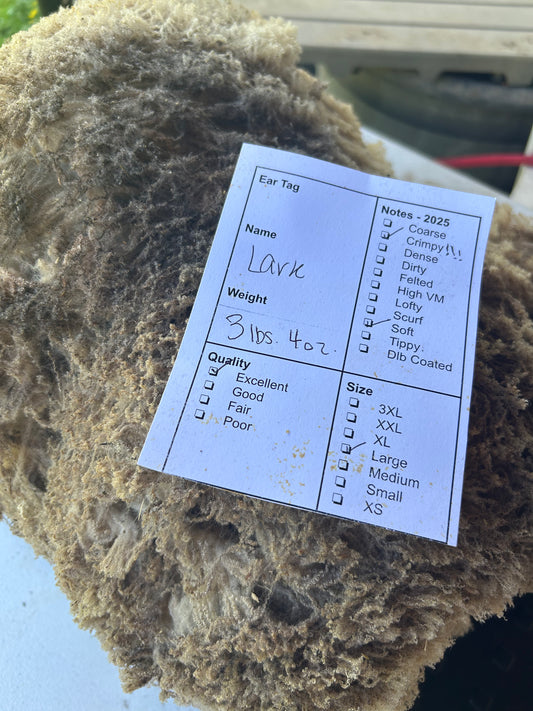 Ear Tag
Name
Lark
Weight
3 lbs. 4oz.
Notes - 2025
Coarse
Crimpy!!!
Dense
Dirty
Felted
High VM
Lofty
Scurf
Soft
Tippy
Dlb Coated
Quality
Excellent
Good
Fair
Poor
Size
3XL
XXL
XL
Large
Medium
Small
XS